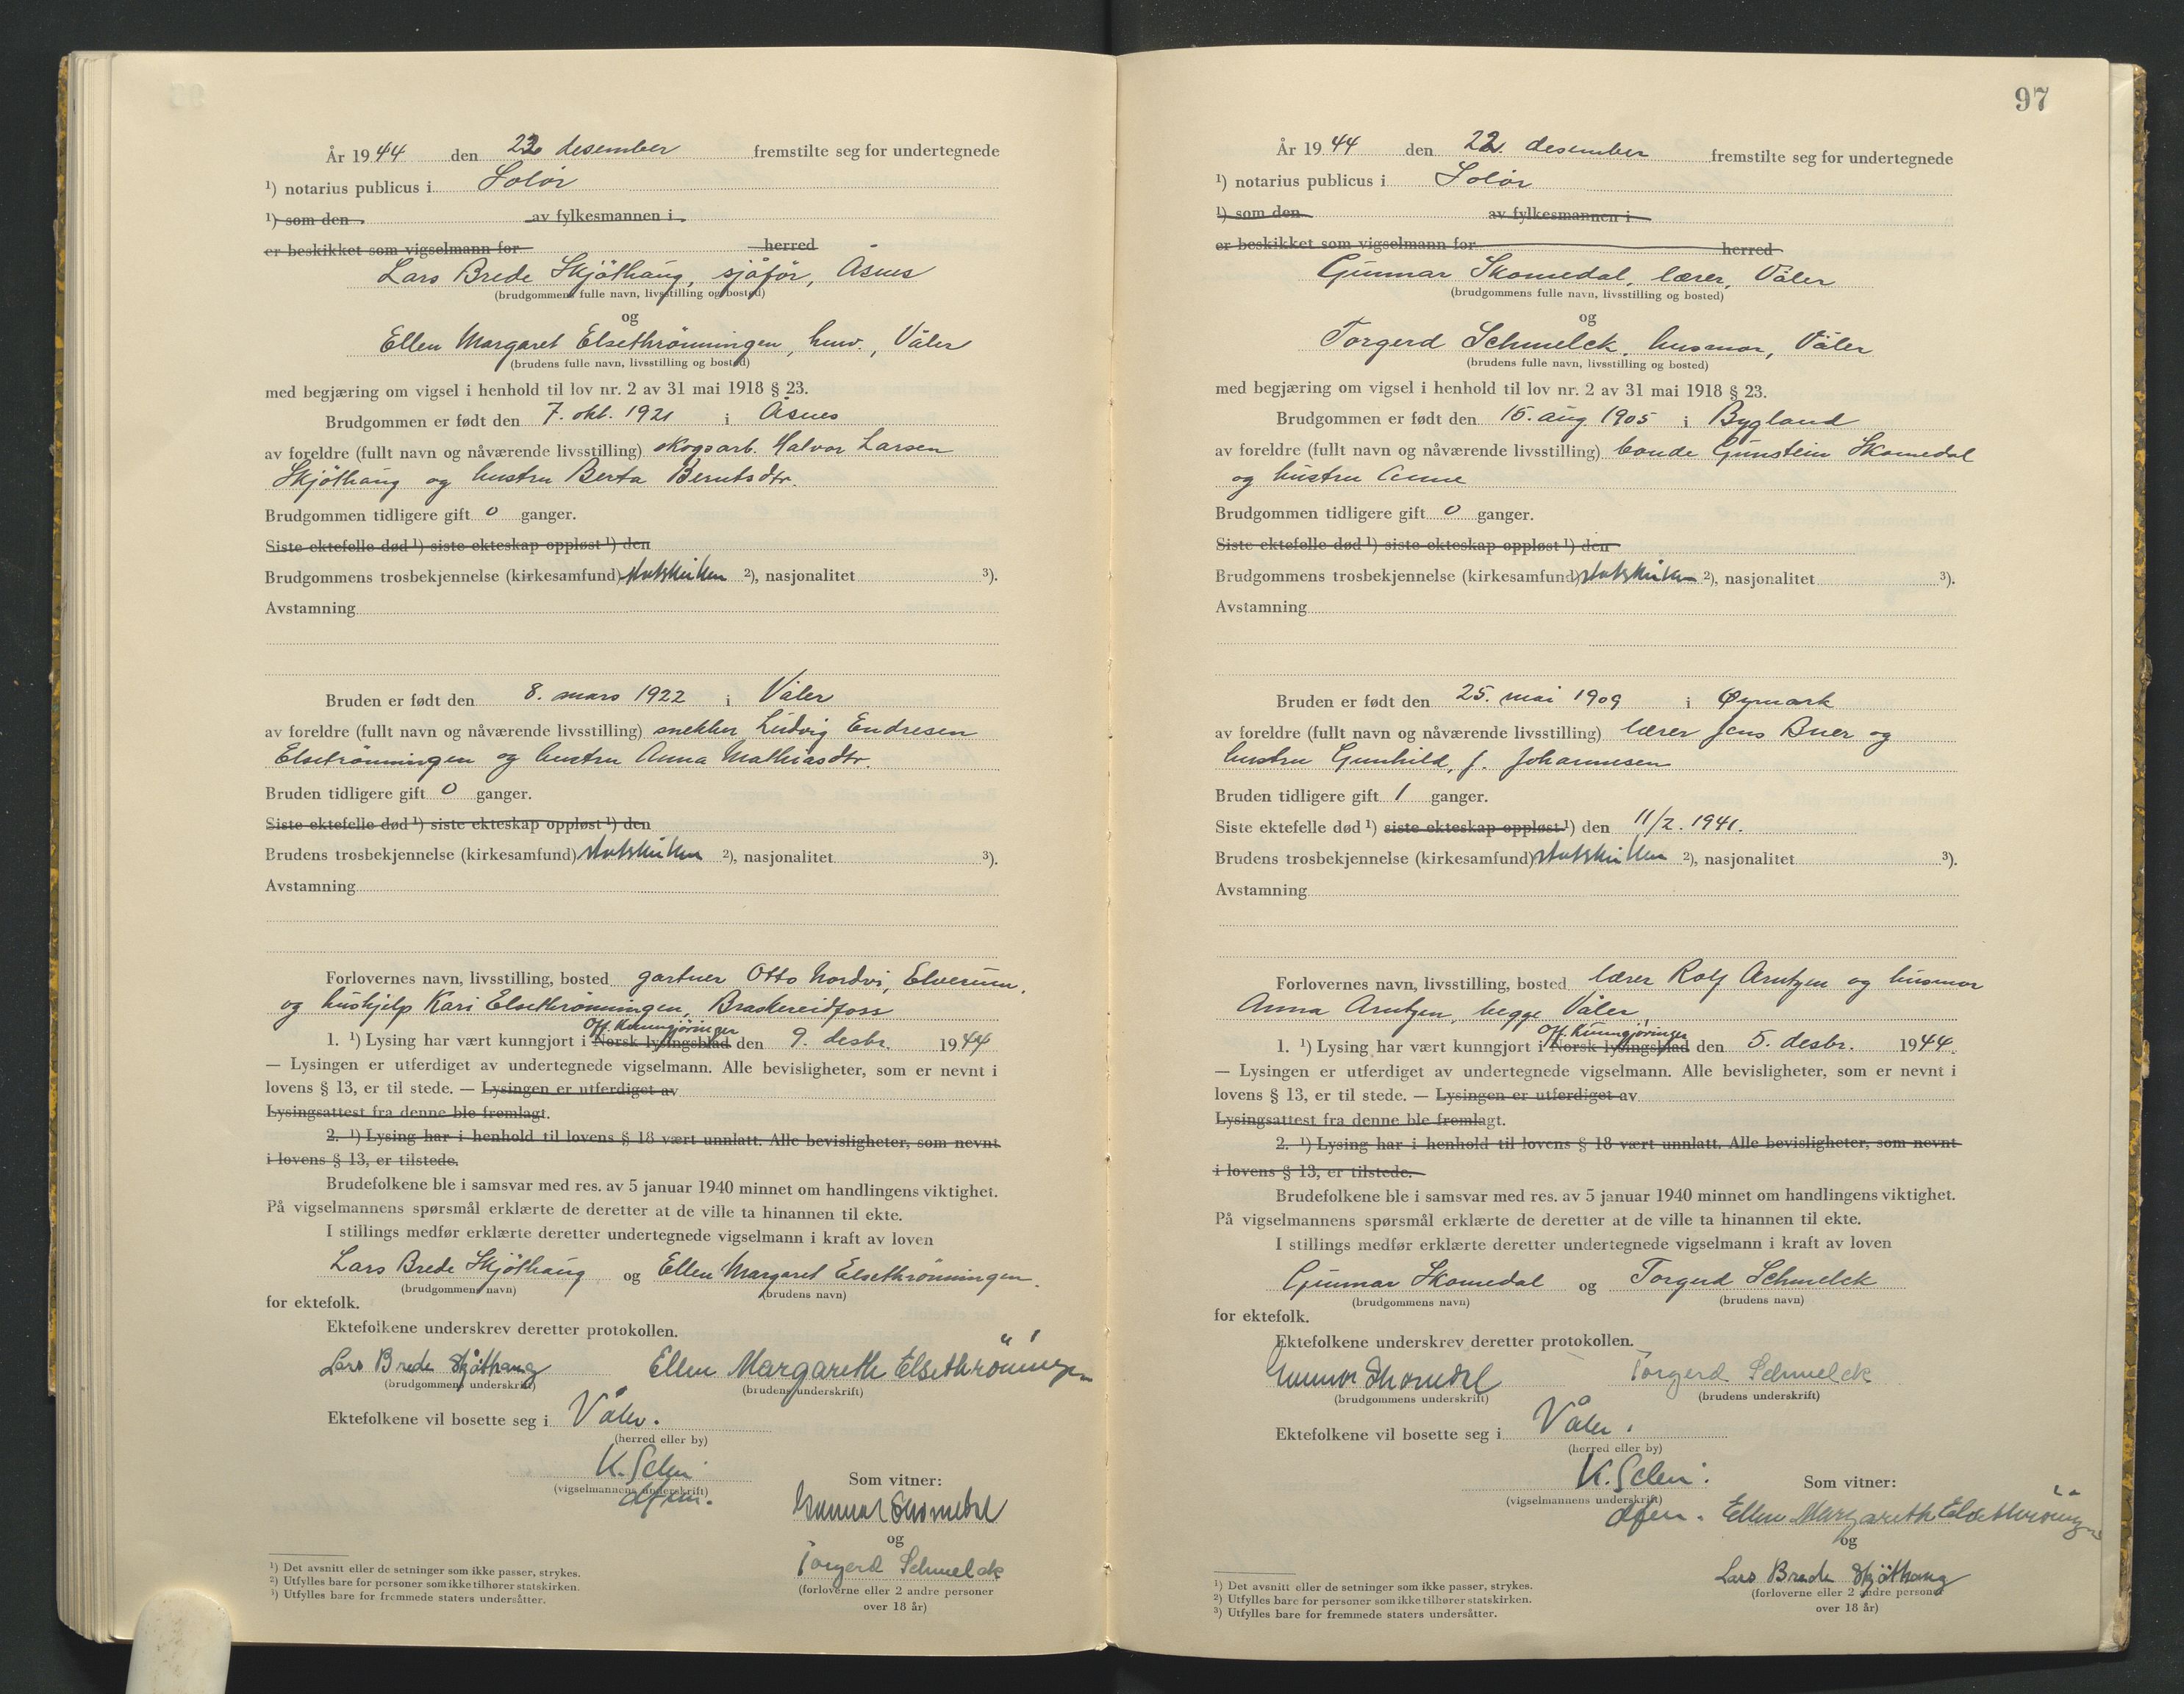 År 1944 den 22 desember fremstilte seg for undertegnede
¹) notarius publicus i Solør
¹) som den av fylkesmannen i
er beskikket som vigselmann for herred
Lars Brede Skjöthaug, sjåför, Åsnes
(brudgommens fulle navn, livsstilling og bosted)
og
Ellen Margaret Elsethrönningen, husv., Våler
(brudens fulle navn, livsstilling og bosted)
med begjæring om vigsel i henhold til lov nr. 2 av 31 mai 1918 § 23.
Brudgommen er født den 7. okt. 1921 i Åsnes
av foreldre (fullt navn og nåværende livsstilling) skogsarb. Halvor Larsen
Skjöthaug og hustru Berta Berntsdtr.
Brudgommen tidligere gift 0 ganger.
Siste ektefelle død ¹) siste ekteskap oppløst ¹) den
Brudgommens trosbekjennelse (kirkesamfund) statskirken ²), nasjonalitet ³).
Avstamning
Bruden er født den 8. mars 1922 i Våler
av foreldre (fullt navn og nåværende livsstilling) snekker Ludvig Endresen
Elsetrönningen og hustru Anna Mathiasdtr.
Bruden tidligere gift 0 ganger.
Siste ektefelle død ¹) siste ekteskap oppløst ¹) den
Brudens trosbekjennelse (kirkesamfund) statskirken ²), nasjonalitet ³).
Avstamning
Forlovernes navn, livsstilling, bosted gartner Otto Nordvi, Elverum,
og hushjelp Kari Elsethrönningen, Braskereidfoss
Off. kunngjöringer
1. ¹) Lysing har vært kunngjort i Norsk lysingsblad den 9. desbr. 1944
— Lysingen er utferdiget av undertegnede vigselmann. Alle bevisligheter, som er nevnt i
lovens § 13, er til stede. — Lysingen er utferdiget av
Lysingsattest fra denne ble fremlagt.
2. ¹) Lysing har i henhold til lovens § 18 vært unnlatt. Alle bevisligheter, som nevnt
i lovens § 13, er tilstede.
Brudefolkene ble i samsvar med res. av 5 januar 1940 minnet om handlingens viktighet.
På vigselmannens spørsmål erklærte de deretter at de ville ta hinannen til ekte.
I stillings medfør erklærte deretter undertegnede vigselmann i kraft av loven
Lars Brede Skjöthaug og Ellen Margaret Elsethrönningen.
(brudgommens navn) (brudens navn)
for ektefolk.
Ektefolkene underskrev deretter protokollen.
Lars Brede Skjöthaug Ellen Margareth Elsethrönningen
(brudgommens underskrift) (brudens underskrift)
Ektefolkene vil bosette seg i Våler.
(herred eller by)
K. Selen
(vigselmannens underskrift)
Som vitner:
Gunnar Skomedal
og
Torgerd Schmelck
(forloverne eller 2 andre personer
over 18 år)
¹) Det avsnitt eller de setninger som ikke passer, strykes.
²) Utfylles bare for personer som ikke tilhører statskirken.
³) Utfylles bare for fremmede staters undersåtter.
97
År 1944 den 22. desember fremstilte seg for undertegnede
¹) notarius publicus i Solør
¹) som den av fylkesmannen i
er beskikket som vigselmann for herred
Gunnar Skomedal, lærer, Våler
(brudgommens fulle navn, livsstilling og bosted)
og
Torgerd Schmelck, husmor, Våler
(brudens fulle navn, livsstilling og bosted)
med begjæring om vigsel i henhold til lov nr. 2 av 31 mai 1918 § 23.
Brudgommen er født den 15. aug 1905 i Bygland
av foreldre (fullt navn og nåværende livsstilling) bonde Gunstein Skomedal
og hustru Anne
Brudgommen tidligere gift 0 ganger.
Siste ektefelle død ¹) siste ekteskap oppløst ¹) den
Brudgommens trosbekjennelse (kirkesamfund) statskirken ²), nasjonalitet ³).
Avstamning
Bruden er født den 25. mai 1909 i Øymark
av foreldre (fullt navn og nåværende livsstilling) lærer Jens Buer og
hustru Gunhild, f. Johannesen
Bruden tidligere gift 1 ganger.
Siste ektefelle død ¹) siste ekteskap oppløst ¹) den 11/2. 1941.
Brudens trosbekjennelse (kirkesamfund) statskirken ²), nasjonalitet ³).
Avstamning
Forlovernes navn, livsstilling, bosted lærer Rolf Arntzen og husmor
Anna Arntzen, begge Våler,
Off. kunngjöringer
1. ¹) Lysing har vært kunngjort i Norsk lysingsblad den 5. desbr. 1944.
— Lysingen er utferdiget av undertegnede vigselmann. Alle bevisligheter, som er nevnt i
lovens § 13, er til stede. — Lysingen er utferdiget av
Lysingsattest fra denne ble fremlagt.
2. ¹) Lysing har i henhold til lovens § 18 vært unnlatt. Alle bevisligheter, som nevnt
i lovens § 13, er tilstede.
Brudefolkene ble i samsvar med res. av 5 januar 1940 minnet om handlingens viktighet.
På vigselmannens spørsmål erklærte de deretter at de ville ta hinannen til ekte.
I stillings medfør erklærte deretter undertegnede vigselmann i kraft av loven
Gunnar Skomedal og Torgerd Schmelck
(brudgommens navn) (brudens navn)
for ektefolk.
Ektefolkene underskrev deretter protokollen.
Gunnar Skomedal Torgerd Schmelck
(brudgommens underskrift) (brudens underskrift)
Ektefolkene vil bosette seg i Våler.
(herred eller by)
K. Selen
(vigselmannens underskrift)
Som vitner:
Ellen Margareth Elsethröningen
og
Lars Brede Skjöthaug
(forloverne eller 2 andre personer
over 18 år)
¹) Det avsnitt eller de setninger som ikke passer, strykes.
²) Utfylles bare for personer som ikke tilhører statskirken.
³) Utfylles bare for fremmede staters undersåtter.